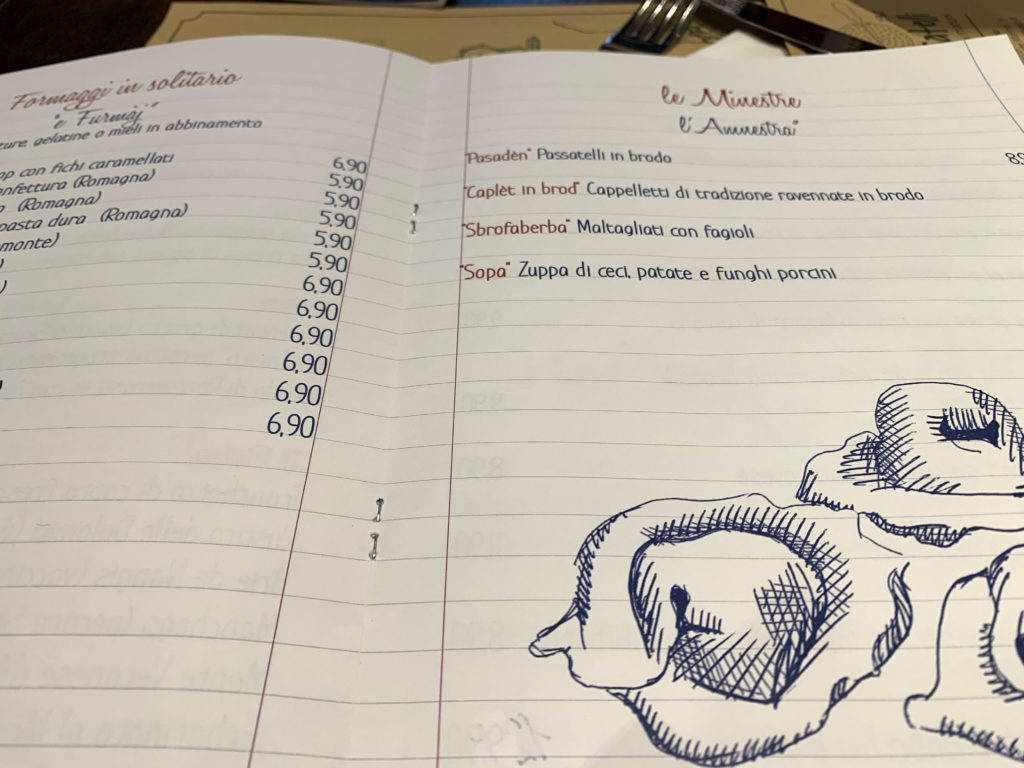 Formaggi in solitario
"e Furmàj"
ture, gelatine o mieli in abbinamento
op con fichi caramellati 6,90
onfettura (Romagna) 5,90
o (Romagna) 5,90
pasta dura (Romagna) 5,90
monte) 5,90
) 5,90
) 6,90
6,90
6,90
6,90
6,90
6,90
le Minestre
"l'Amnestra"
"Pasadèn" Passatelli in brodo 8,9
"Caplèt in brod" Cappelletti di tradizione ravennate in brodo
"Sbrofaberba" Maltagliati con fagioli
"Sopa" Zuppa di ceci, patate e funghi porcini